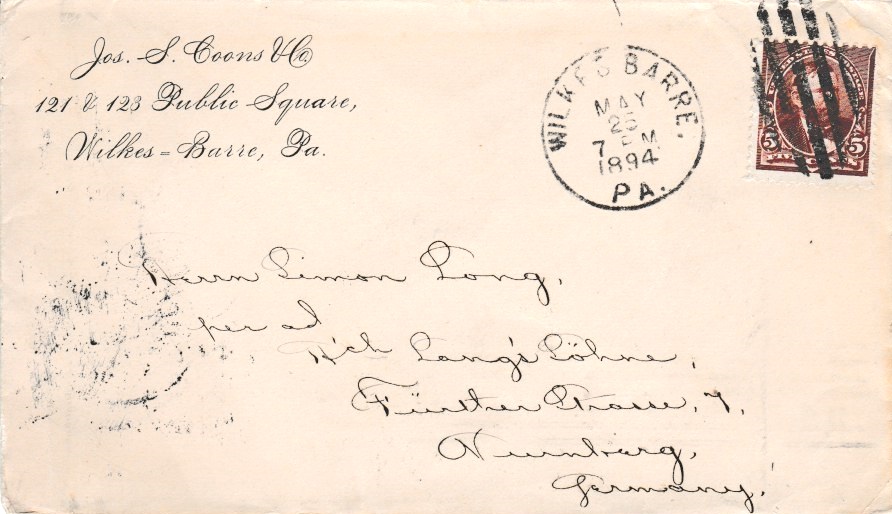 Jos. S. Coons & Co.
121 & 123 Public Square,
Wilkes-Barre, Pa.
WILKES BARRE.
MAY
25
7 PM
1894
PA.
5 5
Herrn Simon Long,
per ad
Söhne,
Fürther Strasse, 7,
Nurnberg,
Germany.